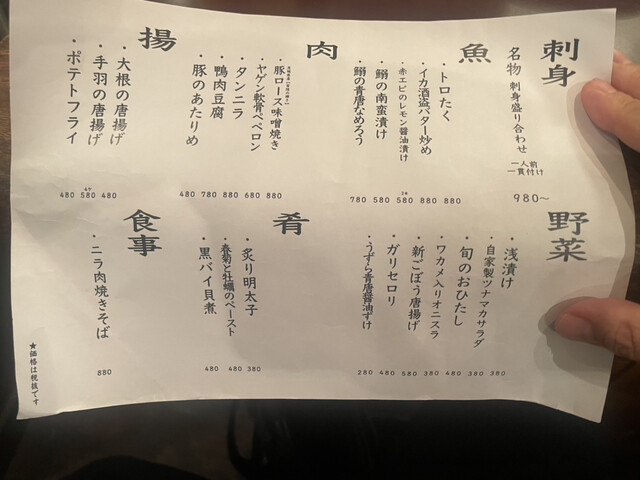 刺身
名物 刺身盛り合わせ
一人前
一貫付け
980~
魚
・トロたく
・イカ酒盗バター炒め
・赤エビのレモン醤油漬け
・鰯の南蛮漬け
・鰯の青唐なめろう
880
880
580
580
780
肉
・豚ロース味噌焼き
・ヤゲン軟骨ペペロン
・タンニラ
・鴨肉豆腐
・豚のあたりめ
880
680
880
780
480
揚
・大根の唐揚げ
・手羽の唐揚げ
・ポテトフライ
480
580
480
野菜
・浅漬け
・自家製ツナマカサラダ
・旬のおひたし
・ワカメ入りオニスラ
・新ごぼう唐揚げ
・ガリセロリ
・うずら青唐醤油ずけ
380
380
480
380
580
480
280
肴
・炙り明太子
・春菊と牡蠣のペースト
・黒バイ貝煮
380
480
480
食事
・ニラ肉焼きそば
880
★価格は税抜です